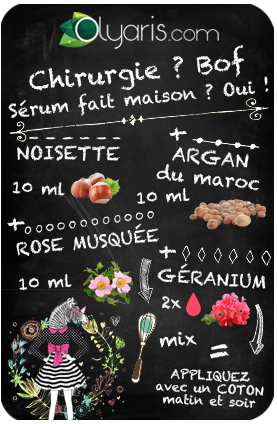 Olyaris.com
Chirurgie ? Bof
Sérum fait maison ? Oui !
NOISETTE
10 ml
+
ARGAN
du maroc
10 ml
+
ROSE MUSQUÉE
10 ml
+
GÉRANIUM
2x
mix
=
APPLIQUEZ
avec un COTON
matin et soir